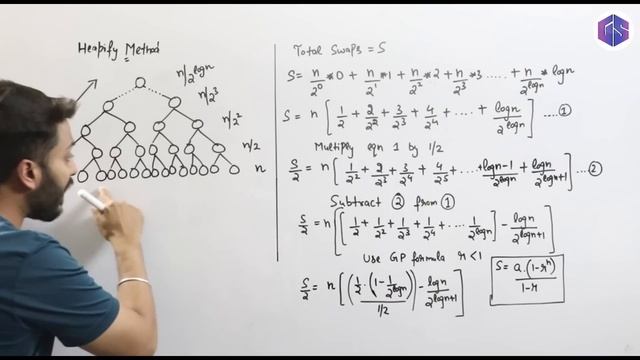 Heapify Method
n/2^logn
n/2^3
n/2^2
n/2
n
Total Swaps = S
S = n/2^0 * 0 + n/2^1 * 1 + n/2^2 * 2 + n/2^3 * 3 ..... + n/2^logn * logn
S = n [ 1/2 + 2/2^2 + 3/2^3 + 4/2^4 + .... + logn/2^logn ] .... ①
Multiply eqn 1 by 1/2
S/2 = n [ 1/2^2 + 2/2^3 + 3/2^4 + 4/2^5 + ....+ logn-1/2^logn + logn/2^logn+1 ] ... ②
Subtract ② from ①
S/2 = n [[ 1/2 + 1/2^2 + 1/2^3 + 1/2^4 + .... 1/2^logn ] - logn/2^logn+1 ]
Use GP formula r<1
S = a.(1-r^n)/1-r
S/2 = n [ ( 1/2 . (1 - 1/2^logn) / 1/2 ) - logn/2^logn+1 ]